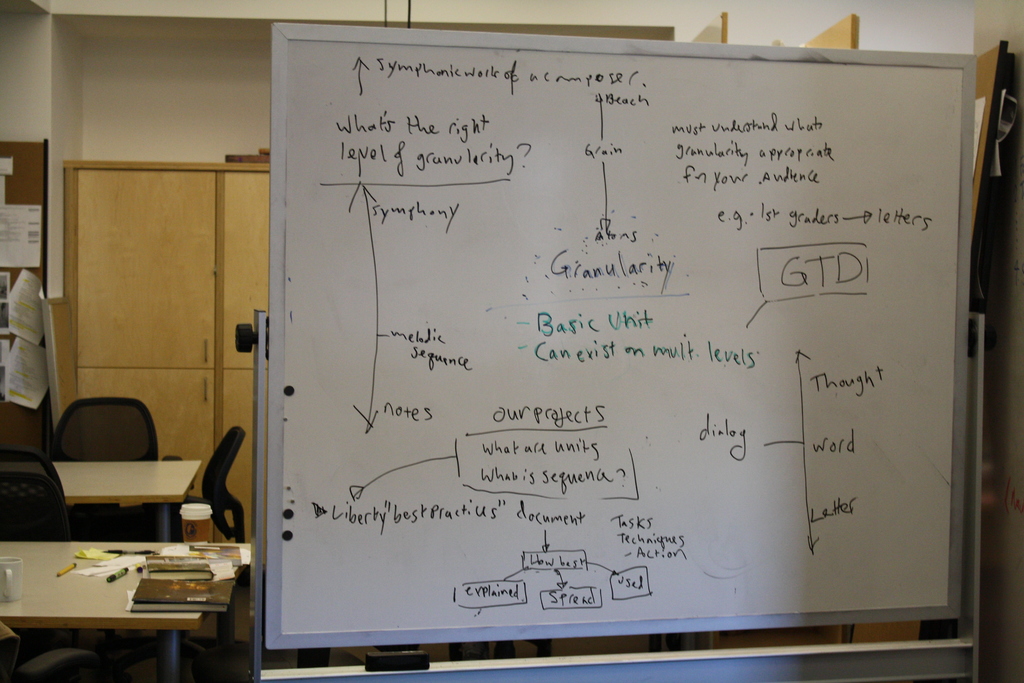 symphonic work of a composer.
What's the right
level of granularity?
symphony
melodic
sequence
notes
Beach
Grain
Atoms
Granularity
- Basic Unit
- Can exist on mult. levels
must understand whats
granularity appropriate
for your audience
e.g. 1st graders → letters
GTD
Thought
dialog
word
Letter
our projects
what are units
What is sequence?
Liberty "best practices" document
How best
explained
spread
used
Tasks
Techniques
- Action